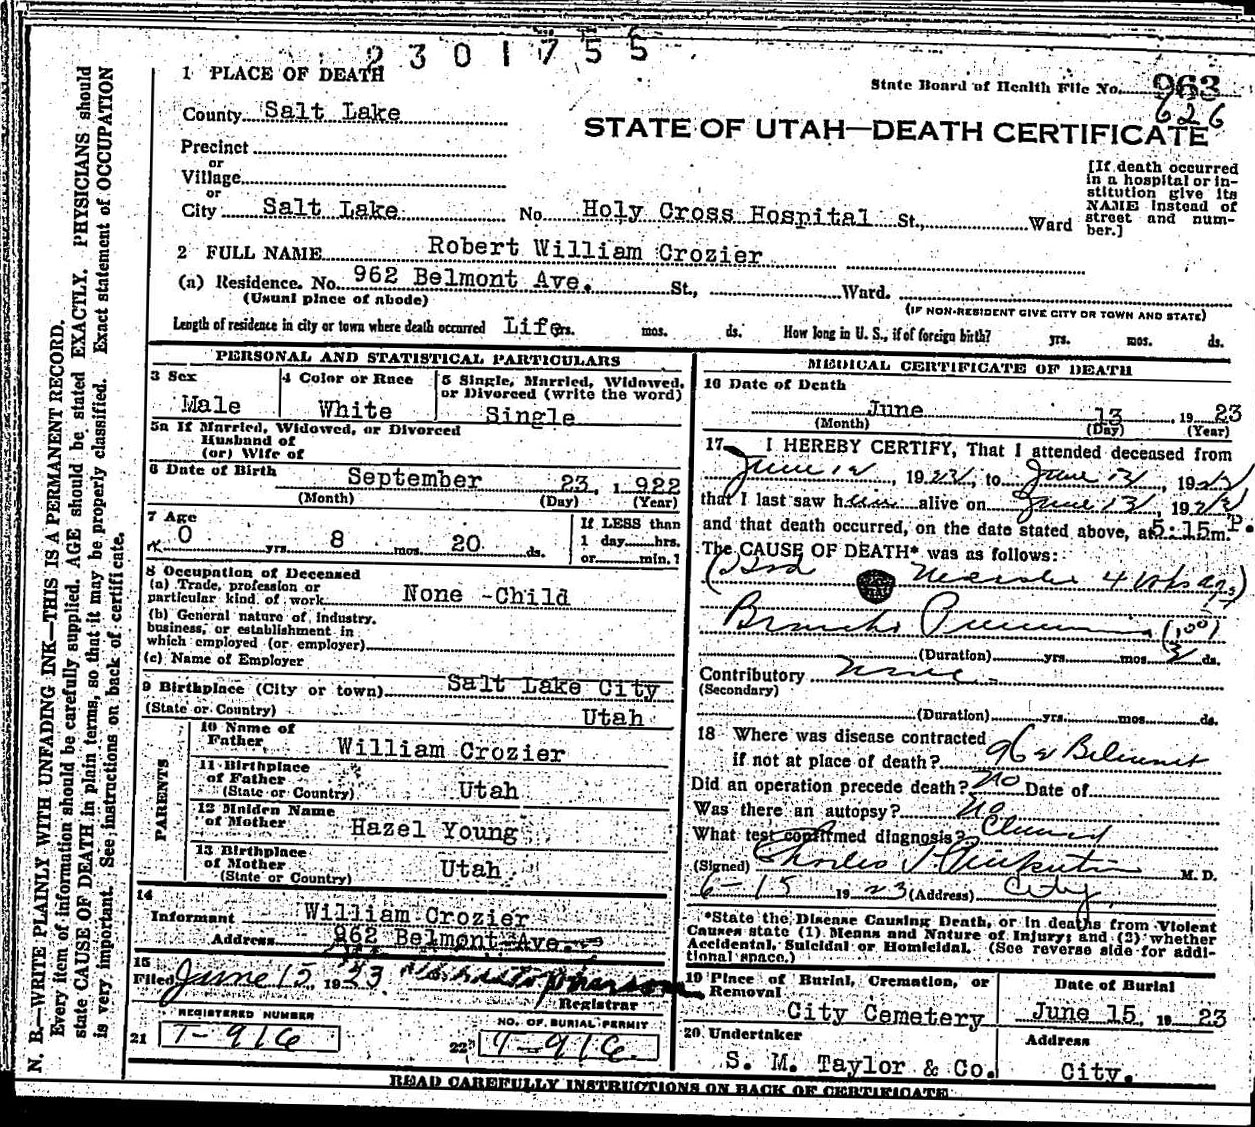 2301755
1 PLACE OF DEATH
State Board of Health File No. 963
626
County Salt Lake
STATE OF UTAH—DEATH CERTIFICATE
Precinct
or
Village
or
City Salt Lake No. Holy Cross Hospital St., Ward
[If death occurred
in a hospital or in-
stitution give its
NAME instead of
street and num-
ber.]
2 FULL NAME Robert William Crozier
(a) Residence. No. 962 Belmont Ave. St., Ward.
(Usual place of abode)
(IF NON-RESIDENT GIVE CITY OR TOWN AND STATE)
Length of residence in city or town where death occurred Life yrs. mos. ds. How long in U. S., if of foreign birth? yrs. mos. ds.
PERSONAL AND STATISTICAL PARTICULARS
3 Sex
Male
4 Color or Race
White
5 Single, Married, Widowed,
or Divorced (write the word)
Single
5a If Married, Widowed, or Divorced
Husband of
(or) Wife of
6 Date of Birth September 23, 1922
(Month) (Day) (Year)
7 Age
0 yrs. 8 mos. 20 ds.
If LESS than
1 day hrs.
or min.?
8 Occupation of Deceased
(a) Trade, profession or
particular kind of work None -Child
(b) General nature of industry,
business, or establishment in
which employed (or employer)
(c) Name of Employer
9 Birthplace (City or town) Salt Lake City
(State or Country) Utah
PARENTS
10 Name of
Father William Crozier
11 Birthplace
of Father
(State or Country) Utah
12 Maiden Name
of Mother Hazel Young
13 Birthplace
of Mother
(State or Country) Utah
14
Informant William Crozier
Address 962 Belmont Ave.
15
Filed June 15, 1923
Registrar
REGISTERED NUMBER
21 T-916
NO. OF BURIAL PERMIT
22 T-916.
MEDICAL CERTIFICATE OF DEATH
16 Date of Death
June 13, 1923
(Month) (Day) (Year)
17 I HEREBY CERTIFY, That I attended deceased from
June 12, 1923, to June 13, 1923
that I last saw him alive on June 13, 1923
and that death occurred, on the date stated above, at 5:15 P. m.
The CAUSE OF DEATH* was as follows:
(Had Measles 4 wks ago)
Broncho Pneumonia (100)
(Duration) yrs. mos. 3 ds.
Contributory None
(Secondary)
(Duration) yrs. mos. ds.
18 Where was disease contracted
if not at place of death? 962 Belmont
Did an operation precede death? No Date of
Was there an autopsy? No
What test confirmed diagnosis? Clinical
(Signed) Charles J. Pinkerton M. D.
6-15 1923 (Address) City
*State the Disease Causing Death, or in deaths from Violent
Causes state (1) Means and Nature of Injury; and (2) whether
Accidental, Suicidal or Homicidal. (See reverse side for addi-
tional space.)
19 Place of Burial, Cremation, or
Removal
City Cemetery
Date of Burial
June 15, 1923
20 Undertaker
S. M. Taylor & Co.
Address
City.
READ CAREFULLY INSTRUCTIONS ON BACK OF CERTIFICATE
N. B.—WRITE PLAINLY WITH UNFADING INK—THIS IS A PERMANENT RECORD.
Every item of information should be carefully supplied. AGE should be stated EXACTLY. PHYSICIANS should
state CAUSE OF DEATH in plain terms, so that it may be properly classified. Exact statement of OCCUPATION
is very important. See instructions on back of certificate.